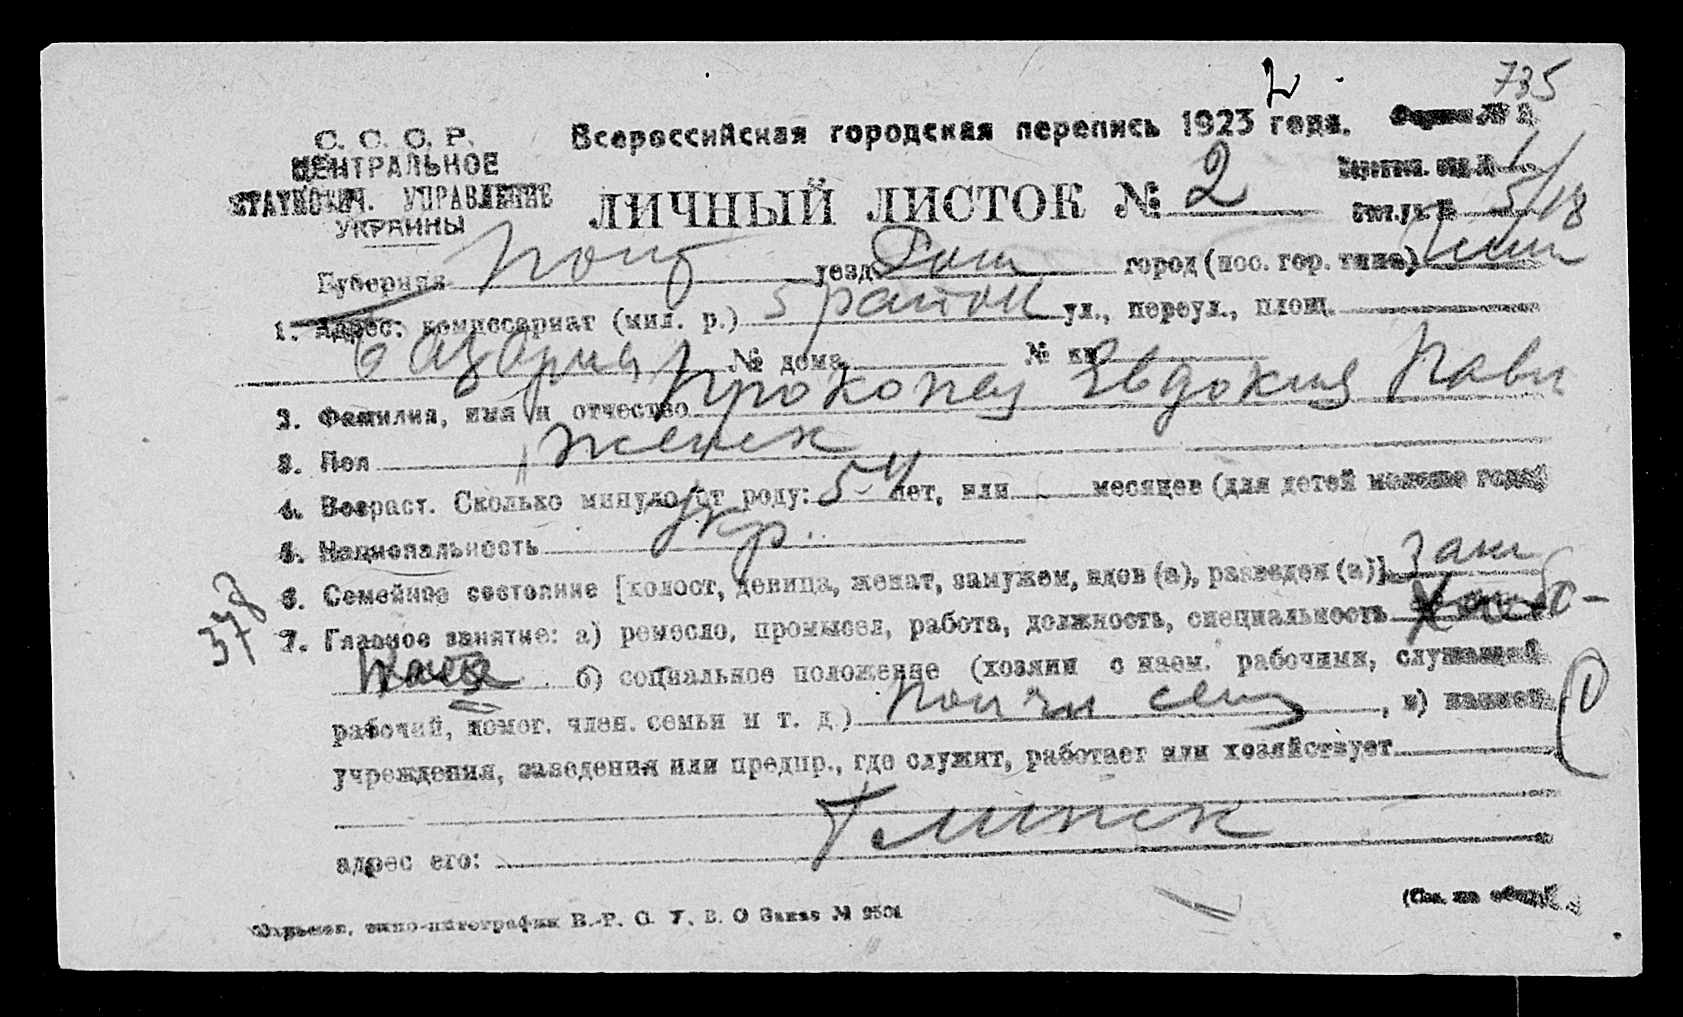 735
2
С. С. С. Р.
ЦЕНТРАЛЬНОЕ
СТАТИСТИЧ. УПРАВЛЕНИЕ
УКРАИНЫ
Всероссийская городская перепись 1923 года.
Форма № 2
ЛИЧНЫЙ ЛИСТОК № 2
Переписн. отд. № 1
Счетн. уч. № 5/18
Губерния Полт уезд Ром город (пос. гор. типа)
1. Адрес: комиссариат (мил. р.) 5 район ул., переул., площ.
базарна № дома № кв
2. Фамилия, имя и отчество Прокопец Евдокия Павл
3. Пол женск
4. Возраст. Сколько минуло от роду: 54 лет, или месяцев (для детей моложе года)
5. Национальность Укр.
6. Семейное состояние [холост, девица, женат, замужем, вдов (а), разведен (а)] зам
378
7. Главное занятие: а) ремесло, промысел, работа, должность, специальность
б) социальное положение (хозяин с наем. рабочими, служащий
рабочий, помог. член. семьи и т. д.) , в) наимен.
учреждения, заведения или предпр., где служит, работает или хозяйствует
адрес его: Глинск
(См. на обор.)
Харьков, типо-литография В.-Р. С. У. В. О Заказ №